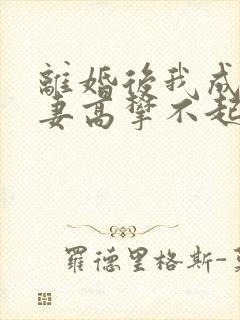 離婚後我成
妻高攀不起
羅德里格斯-